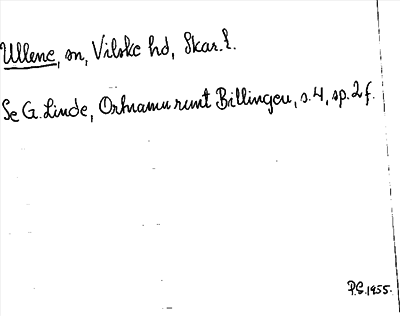 Ullene, sn, Vilske hd, Skar. l.
Se G. Linde, Ortnamn runt Billingen, s. 4, sp. 2 f.
P.S. 1955.